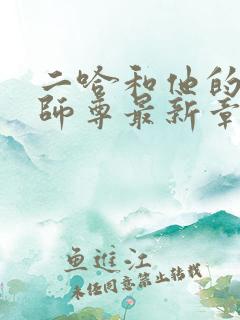 二哈和他的
師尊最新章
鱼進江
未经同意禁止转载